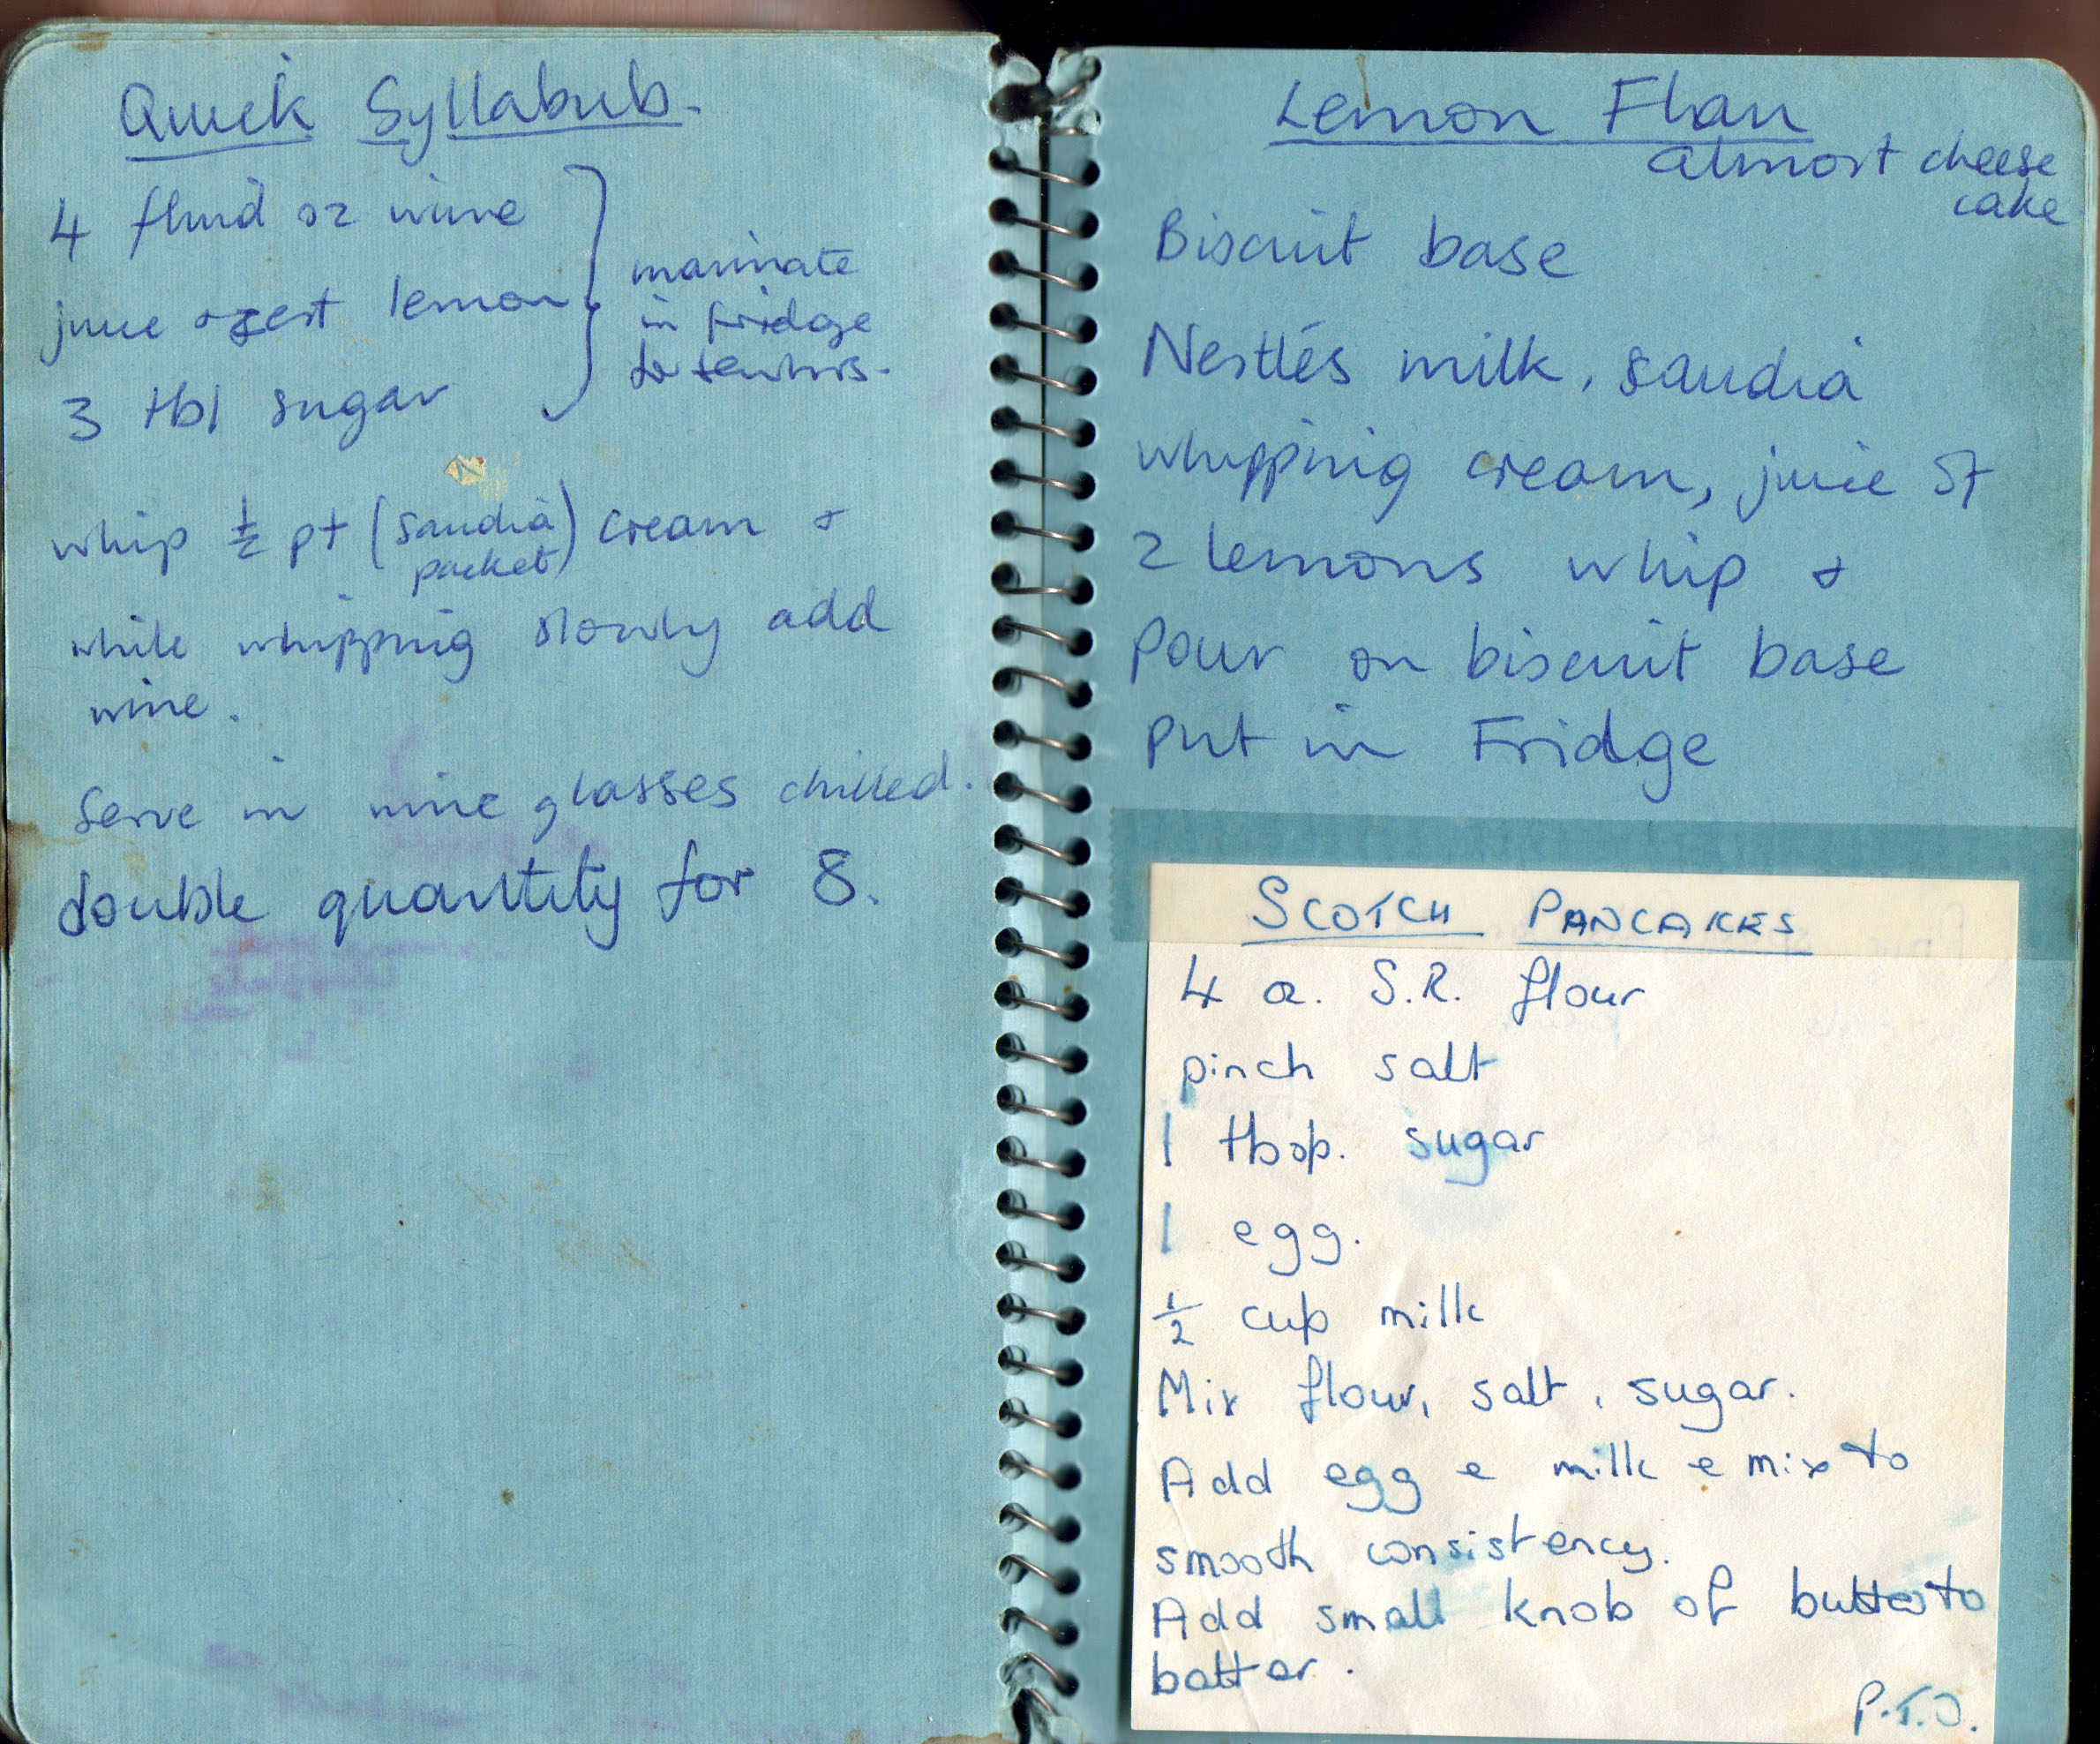 Quick Syllabub.
4 fluid oz wine
juice + zest lemon
3 tbl sugar
marinate
in fridge
for few hrs.
whip ½ pt (saudia packet) cream +
while whipping slowly add
wine.
Serve in wine glasses chilled.
double quantity for 8.
Lemon Flan
almost cheese
cake
Biscuit base
Nestlés milk, saudia
whipping cream, juice of
2 lemons whip +
Pour on biscuit base
put in Fridge
SCOTCH PANCAKES
4 oz. S.R. flour
pinch salt
1 tbsp. sugar
1 egg.
½ cup milk
Mix flour, salt, sugar.
Add egg e milk e mix to
smooth consistency.
Add small knob of butter to
batter.
P.T.O.